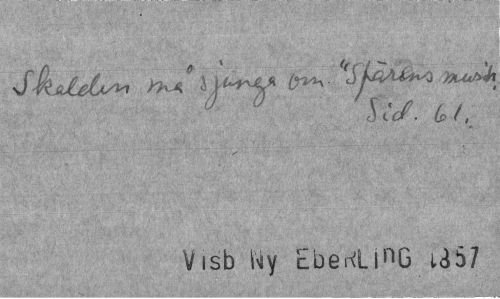 Skalden må sjunga om "Sfärens musik.
Sid. 61.
Visb Ny EbeRLinG 1857